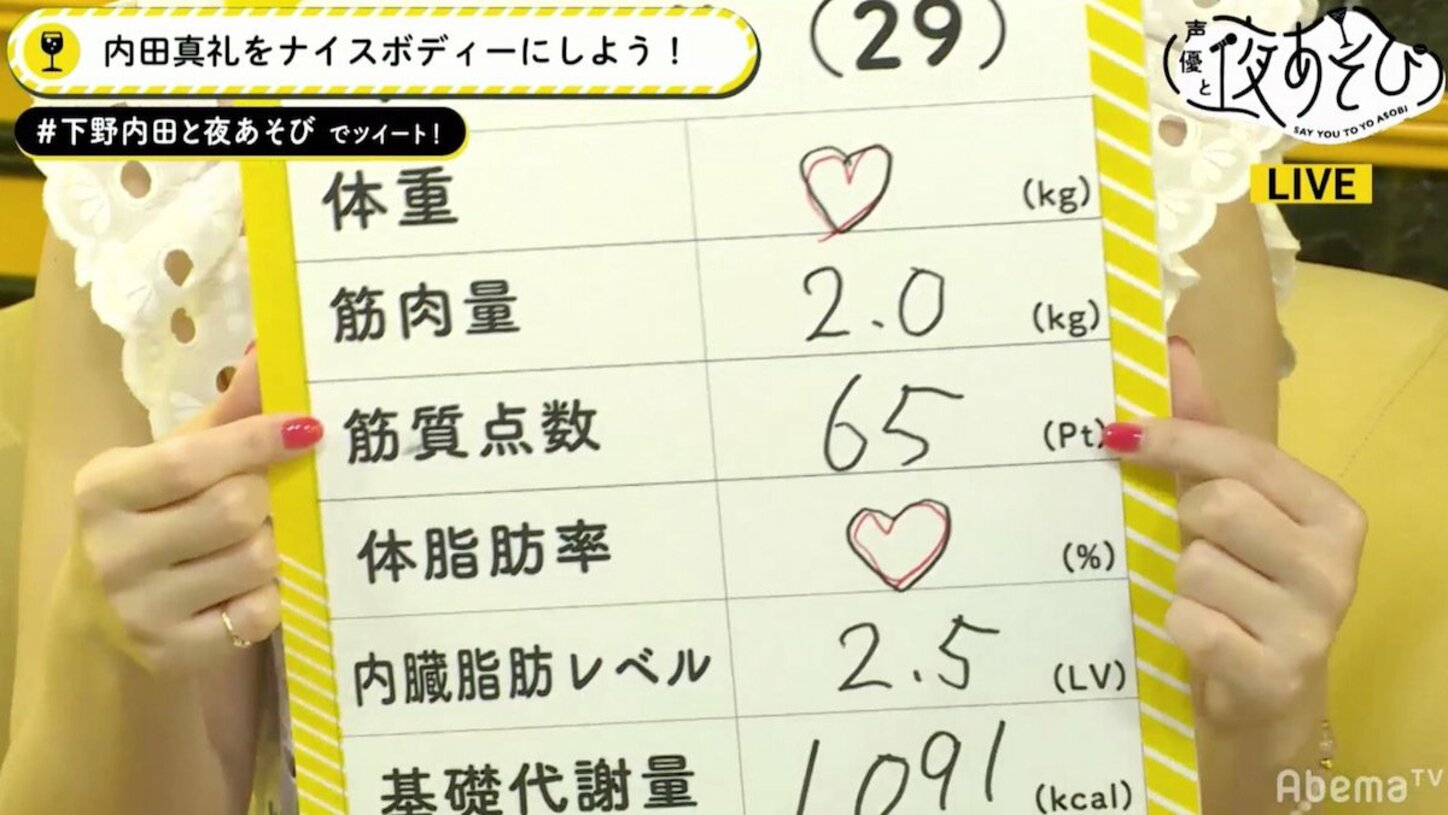 内田真礼をナイスボディーにしよう！
(29)
声優と夜あそび
SAY YOU TO YO ASOBI
#下野内田と夜あそび でツイート！
LIVE
体重 (kg)
筋肉量 2.0 (kg)
筋質点数 65 (Pt)
体脂肪率 (%)
内臓脂肪レベル 2.5 (LV)
基礎代謝量 1091 (kcal)
AbemaTV